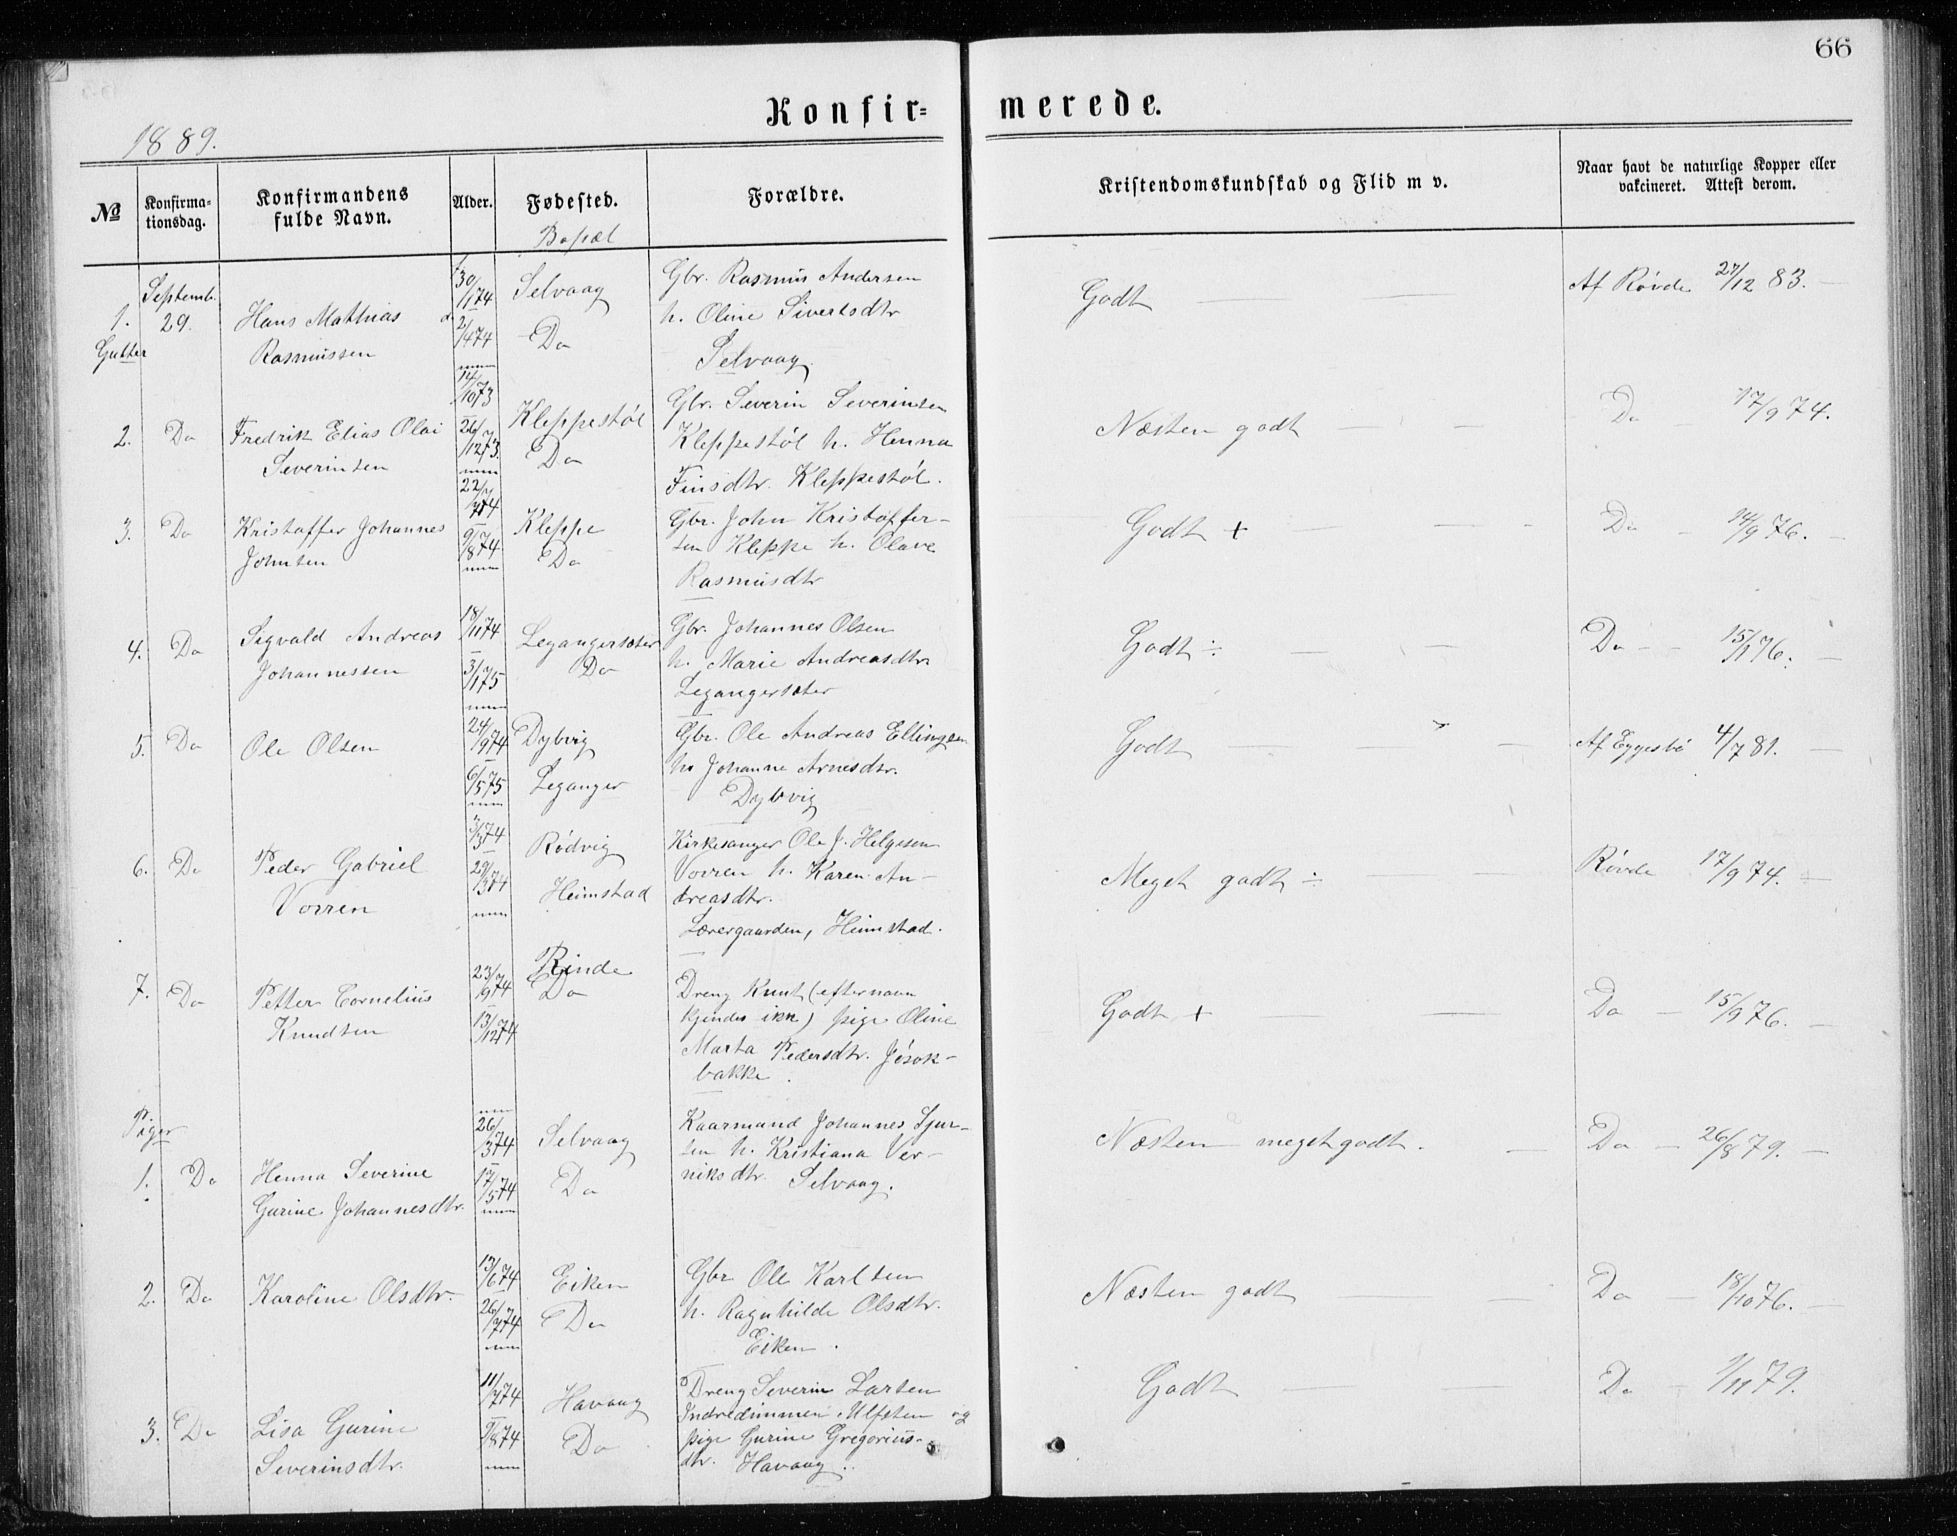 66
Konfir= merede.
1889.
No Konfirma-tionsdag. Konfirmandens fulde Navn. Alder. Fødested. Forældre. Kristendomskundskab og Flid m v. Naar havt de naturlige Kopper eller vakcineret. Attest derom.
Bopæl
Septemb. 30/1 74 Selvaag Gbr. Rasmus Andersen Godt Af Røvde 27/12 83.
1. 29. Hans Mathias 2/4 74 Do h. Oline Sivertsdtr
Gutter Rasmussen Selvaag
14/10 73 Kleppestøl Gbr. Severin Severinsen
2. Do Fredrik Elias Olai 26/12 73. Do Kleppestøl h. Henna Næsten godt Do 17/9 74.
Severinsen Finsdtr. Kleppestøl.
22/7 74 Kleppe Gbr. John Kristoffer-
3. Do Kristoffer Johannes 9/8 74 Do sen Kleppe h. Olave Godt + Do 14/9 76.
Johnsen Rasmusdtr
18/11 74 Gbr. Johannes Olsen
4. Do Sigvald Andreas Legangersæter h. Marie Andreasdtr Godt ÷ Do 15/1 76.
Johannessen 3/1 75 Do Legangersæter
24/9 74 Dybvig Gbr. Ole Andreas Ellingsen
5. Do Ole Olsen h. Johanne Arnesdtr. Godt Af Eggesbø 4/7 81.
6/5 75 Leganger Dybvig
3/3 74 Rødvig Kirkesanger Ole J. Helgesen
6. Do Peder Gabriel 29/3 74 Heimstad Vorren h. Karen An- Meget godt ÷ Røvde 17/9 74.
Vorren dreasdtr.
Lærergaarden, Heimstad.
23/9 74 Rinde
7. Do Petter Cornelius Do Dreng Knut (efternavn Godt + Do 15/9 76.
Knudsen 13/12 74 kjendes ikke) pige Oline
Marta Pedersdtr. Jøsok-
bakke.
Piger 26/3 74 Selvaag Kaarmand Johannes Sjur- Næsten meget godt. Do 26/8 79.
1. Do Henna Severine 17/5 74 Do sen h. Kristiana Ver-
Gurine Johannesdtr. niksdtr. Selvaag.
13/6 74 Eiken Gbr Ole Karlsen
2. Do Karoline Olsdtr. 26/7 74 Do h. Ragnhilde Olsdtr. Næsten godt Do 18/10 76.
Eiken.
11/7 74 Havaag Dreng Severin Larsen Godt Do 1/11 79.
Indredimmen Ulfsten og
3. Do Lisa Gurine 9/8 74 Do pige Gurine Gregorius-
Severinsdtr. dtr. Havaag.